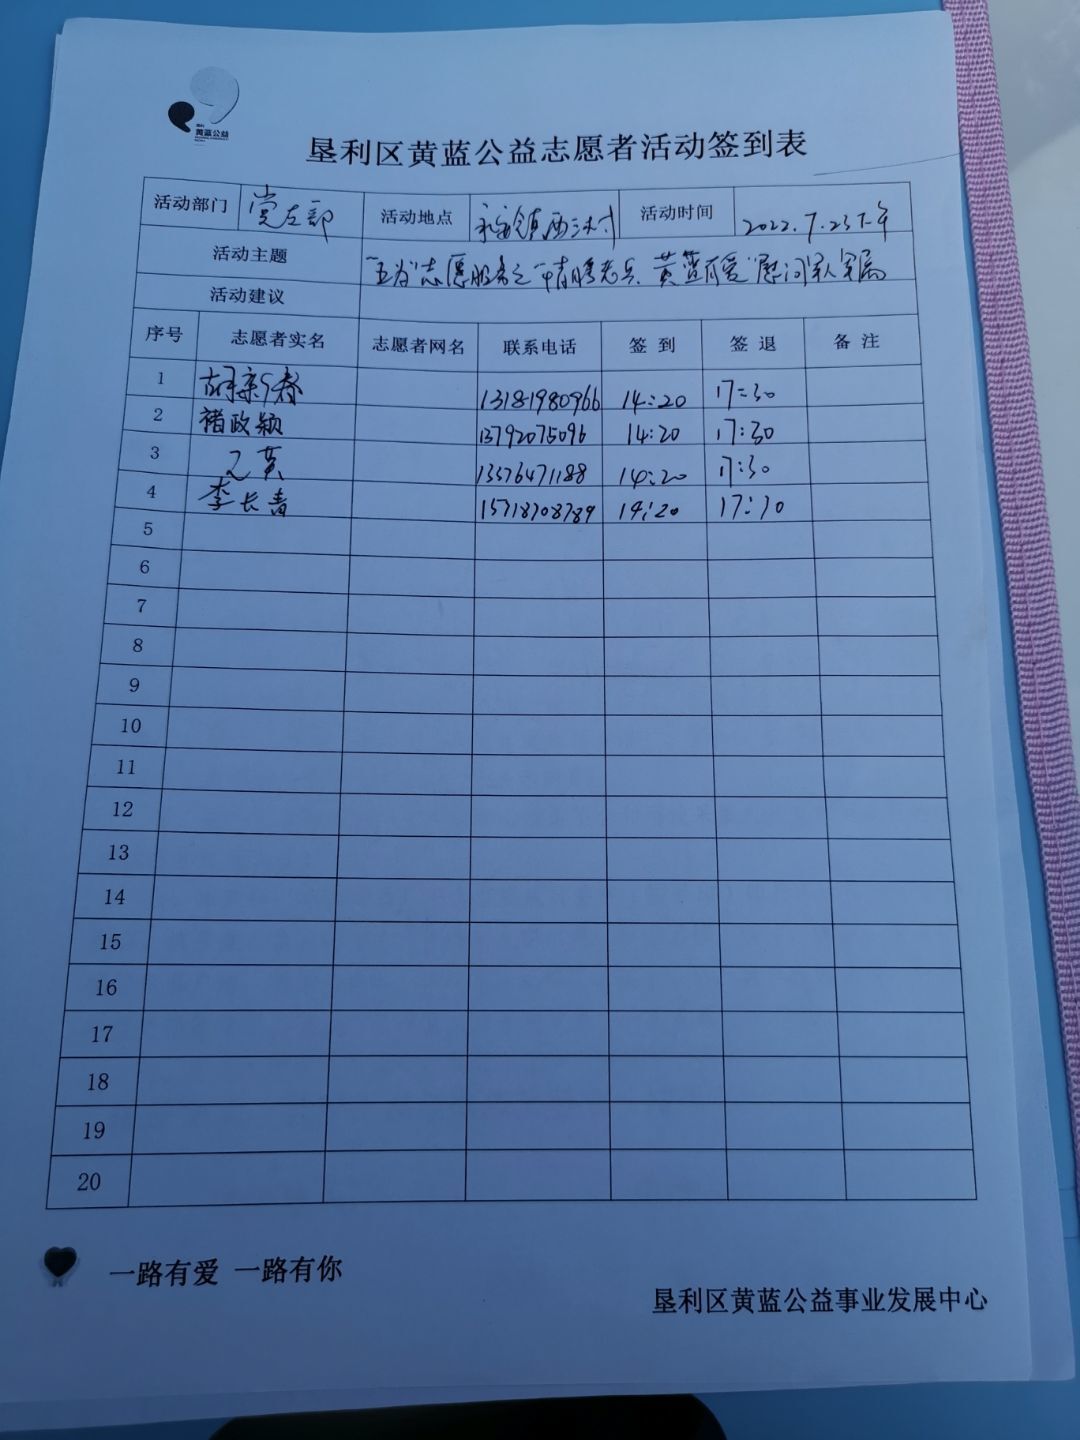 黄蓝公益
垦利区黄蓝公益志愿者活动签到表
活动部门 党在部 活动地点 永安镇西三村 活动时间 2022.7.23下午
活动主题 志愿服务之"情 老兵 黄蓝有爱"慰问 军属
活动建议
序号 志愿者实名 志愿者网名 联系电话 签到 签退 备注
1 胡新春 13181980966 14:20 17:30
2 褚政颖 13792075096 14:20 17:30
3 英 14:20 17:30
4 李长青 14:20 17:30
5
6
7
8
9
10
11
12
13
14
15
16
17
18
19
20
一路有爱 一路有你
垦利区黄蓝公益事业发展中心